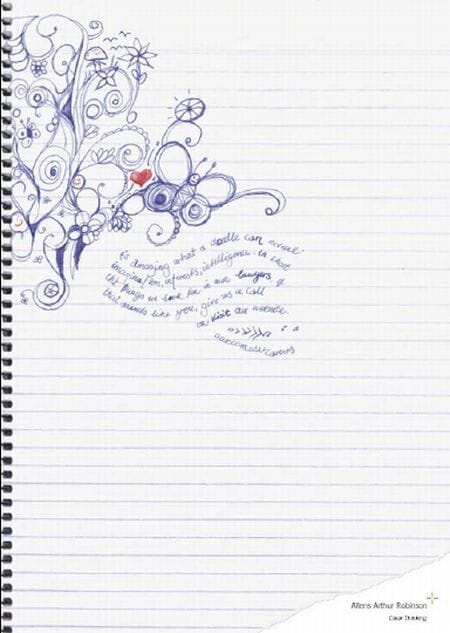 It's amazing what a doodle can reveal.
imagination, interests, intelligence. In short
the things we look for in our lawyers. If
that sounds like you, give us a call
or visit our website.
Allens Arthur Robinson
Clear Thinking